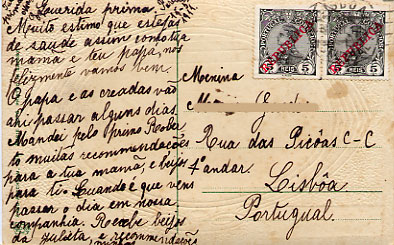 Querida prima
Muito estimo que estejas
de saude assim como tia
mamã e teu papá, nos
felizmente vamos bem.
O papa e as creadas vão
ahi passar alguns dias.
Mandei pelo primo
muitas recommendações
para a tua mamã, e beijos
para ti. Quando é que vens
passar o dia em nossa
companhia. Recebe beijos
da Julieta e recommendações
CORREIO
PORTUGAL
REPUBLICA
5 REIS
CORREIO
PORTUGAL
REPUBLICA
5 REIS
LISBOA
Menina
Rua das Picôas C-C
4º andar.
Lisbôa
Portugal.